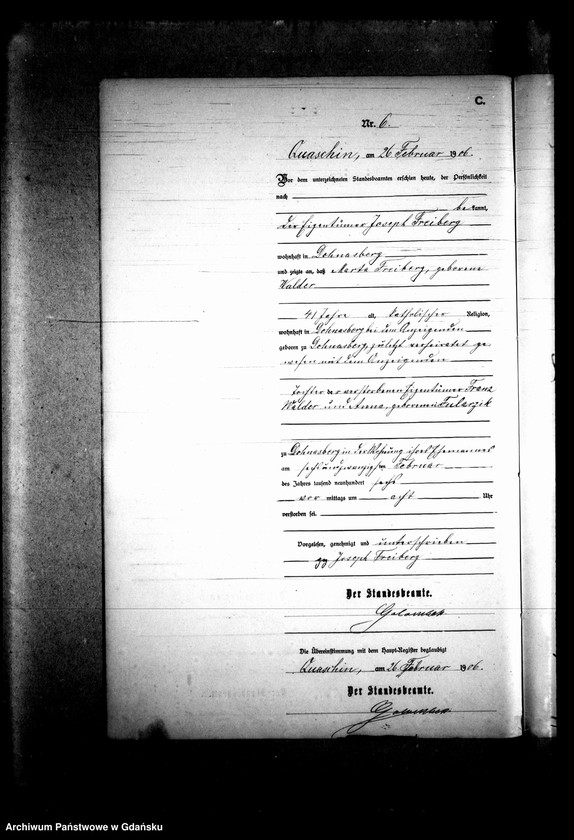 C.
Nr. 6.
Quaschin, am 26 Februar 1906.
Vor dem unterzeichneten Standesbeamten erschien heute, der Persönlichkeit
nach
bekannt,
der Eigentümer Joseph Freiberg
wohnhaft in Dohnasberg
und zeigte an, daß Marta Freiberg, geborene
Walder
41 Jahre alt, katholischer Religion,
wohnhaft in Dohnasberg bei dem Anzeigenden
geboren zu Dohnasberg, zuletzt verheiratet ge
wesen mit dem Anzeigenden
Tochter der verstorbenen Eigentümer Franz
Walder und Anna, geborenen
zu Dohnasberg in der Wohnung ihres Ehemannes
am sechsundzwanzigsten Februar
des Jahres tausend neunhundert sechs
vor mittags um acht Uhr
verstorben sei.
Vorgelesen, genehmigt und unterschrieben
gz Joseph Freiberg
Der Standesbeamte.
Die Übereinstimmung mit dem Haupt-Register beglaubigt
Quaschin, am 26 Februar 1906.
Der Standesbeamte.
Archiwum Państwowe w Gdańsku